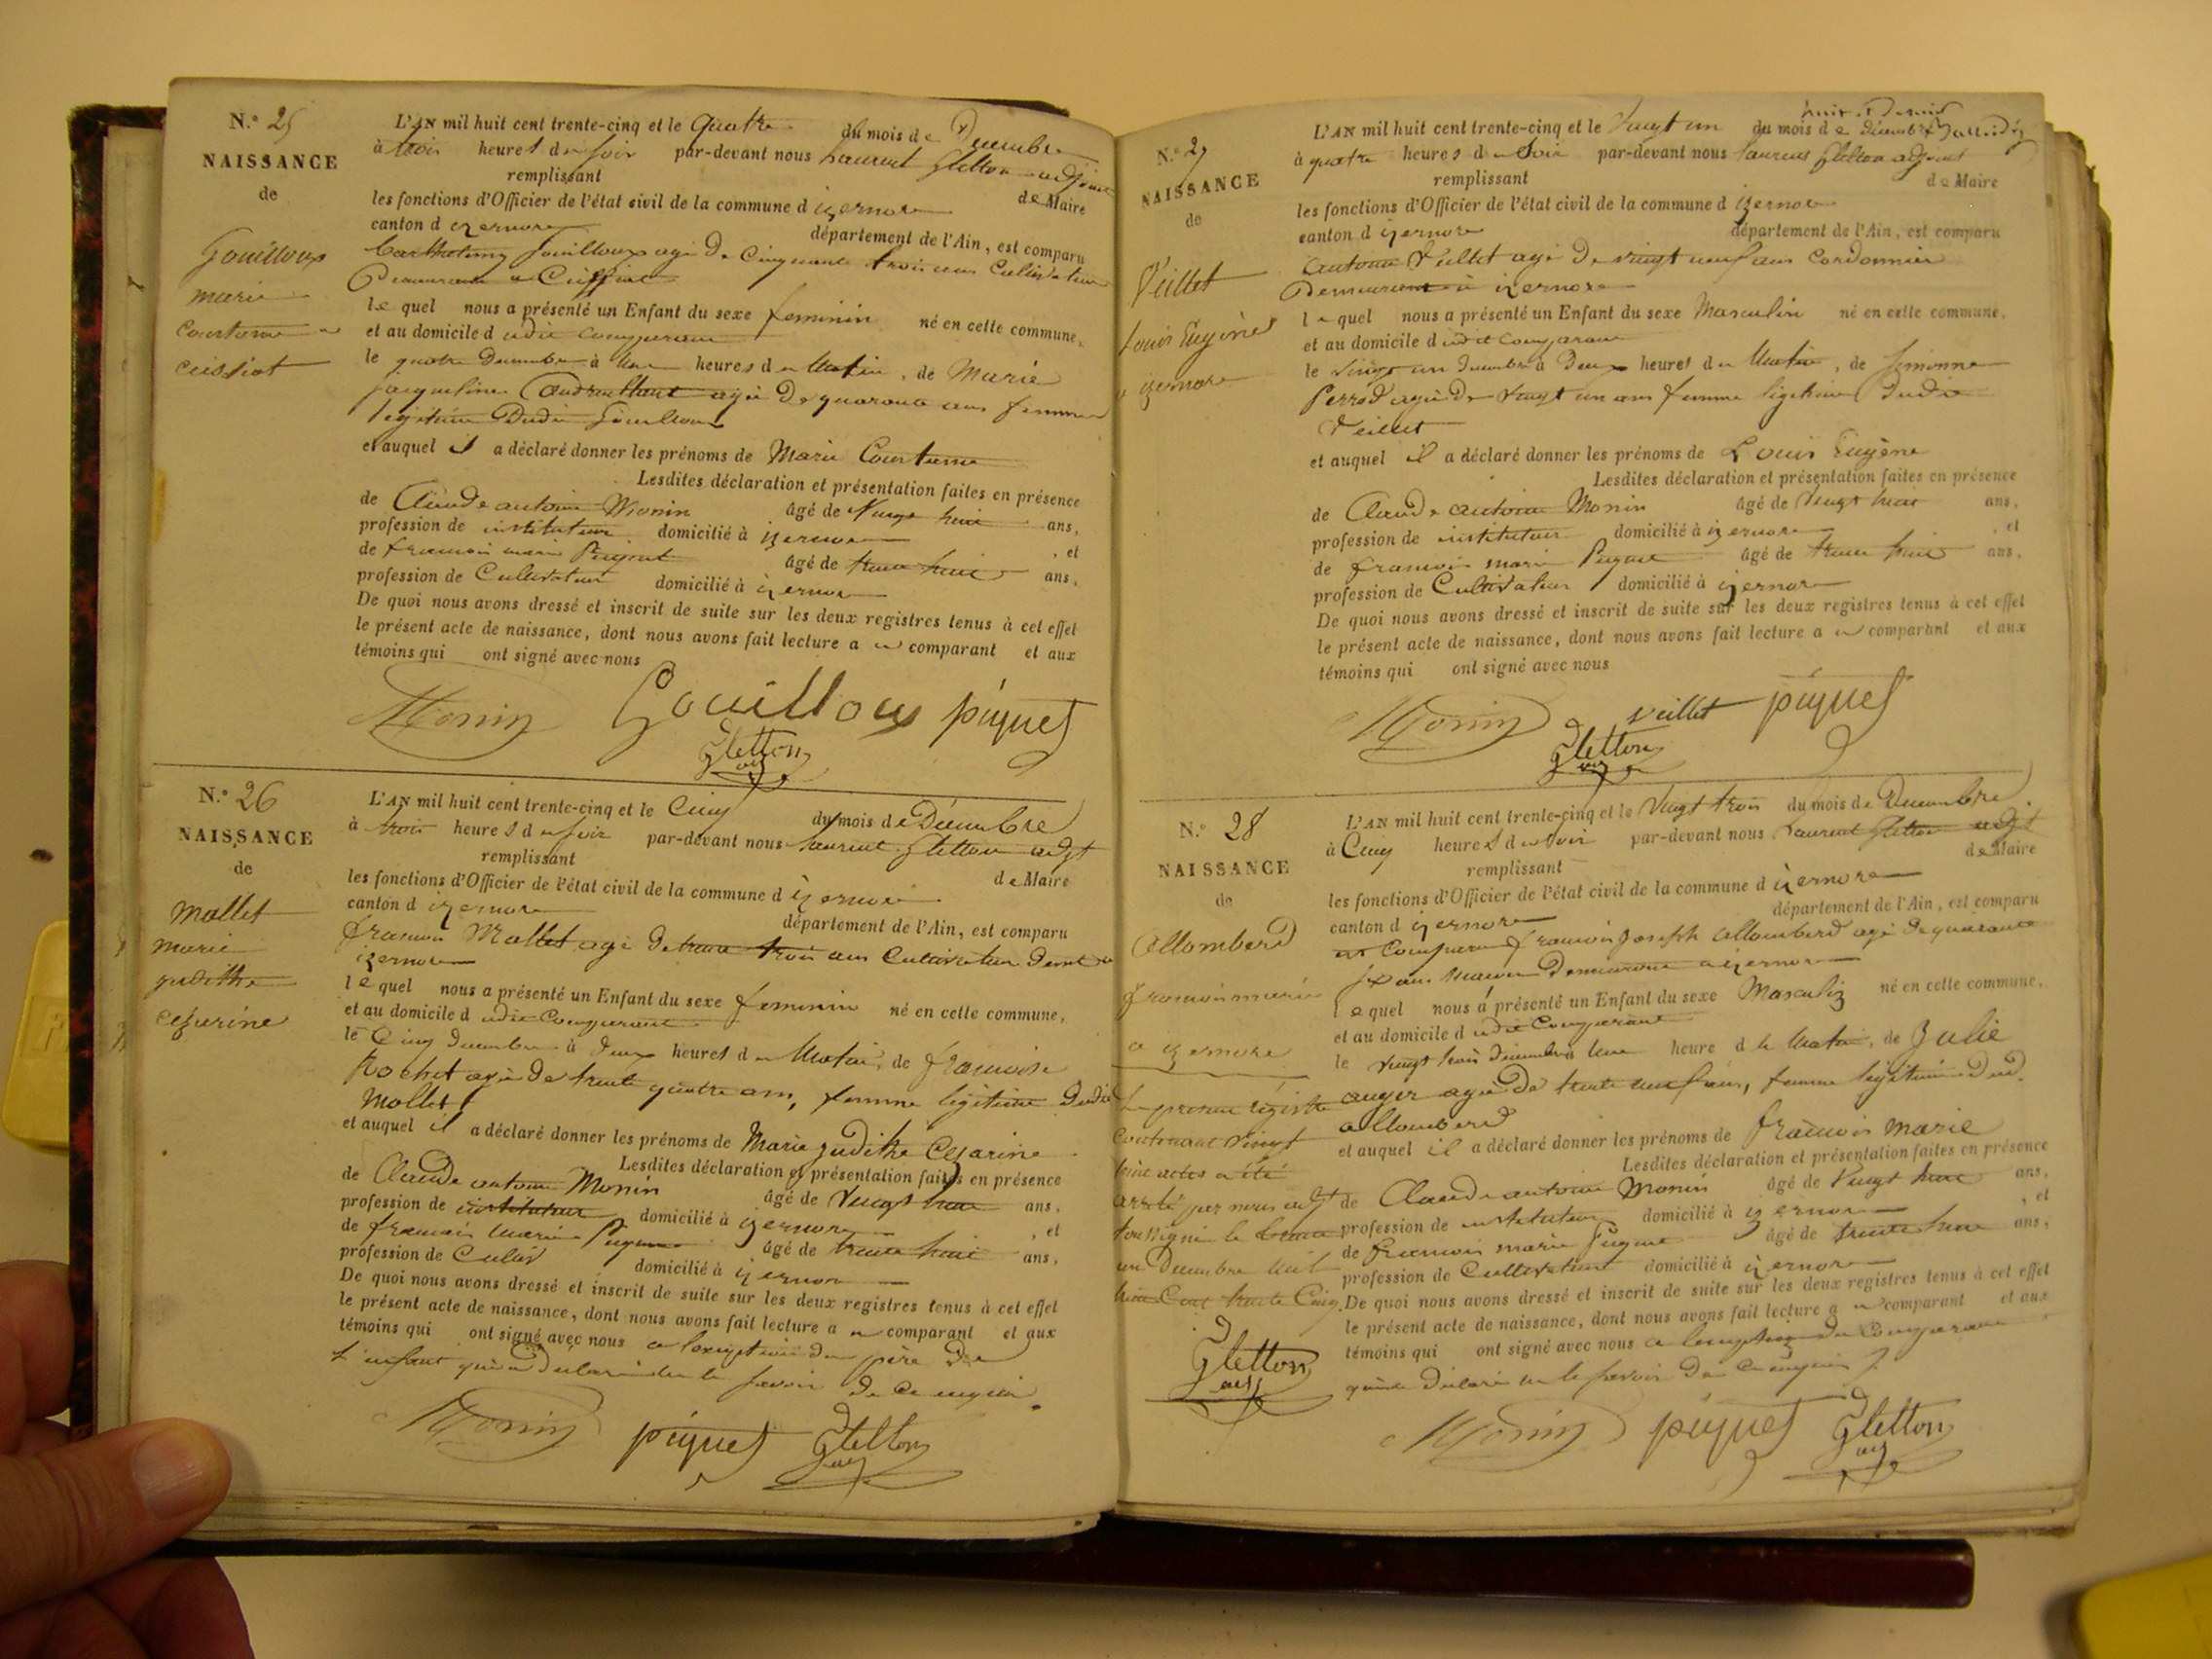 N.º 25
NAISSANCE
de
Gouilloux
marie
courtonne a
ceissiat
L'AN mil huit cent trente-cinq et le quatre du mois de Decembre
à trois heures du soir par-devant nous Laurent Gletton adjoint
remplissant de Maire
les fonctions d'Officier de l'état civil de la commune d izernore
canton d izernore département de l'Ain, est comparu
Barthelemy Gouilloux agé de cinquante trois ans Cultivateur
Demeurant a Ceissiat
lequel nous a présenté un Enfant du sexe feminin né en cette commune,
et au domicile d udit comparant
le quatre Decembre à une heures du Matin, de Marie
jacqueline agée De quarante ans femme
legitime Dudit Gouilloux
et auquel il a déclaré donner les prénoms de Marie
Lesdites déclaration et présentation faites en présence
de Claude antoine Monin âgé de Vingt huit ans,
profession de instituteur domicilié à izernore , et
de francois marie Piquet âgé de trente huit ans,
profession de Cultivateur domicilié à izernore
De quoi nous avons dressé et inscrit de suite sur les deux registres tenus à cet effet
le présent acte de naissance, dont nous avons fait lecture a u comparant et aux
témoins qui ont signé avec nous
Monin Gouilloux piquet
Gletton
adj
N.º 26
NAISSANCE
de
Mollet
marie
judithe
cezarine
L'AN mil huit cent trente-cinq et le Cinq du mois de Décembre
à trois heures du soir par-devant nous Laurent Gletton adjt
remplissant de Maire
les fonctions d'Officier de l'état civil de la commune d izernore
canton d izernore département de l'Ain, est comparu
francois Mollet agé de trente trois ans Cultivateur demt a
izernore
lequel nous a présenté un Enfant du sexe feminin né en cette commune,
et au domicile d udit Comparant
le Cinq decembre à deux heures du Matin, de francoise
Rochet agée de trente quatre ans, femme légitime dudit
Mollet
et auquel il a déclaré donner les prénoms de Marie Judithe Cezarine
Lesdites déclaration et présentation faites en présence
de Claude antoine Monin âgé de Vingt huit ans,
profession de instituteur domicilié à izernore , et
de francois Marie Piquet âgé de trente huit ans,
profession de Cultiv domicilié à izernore
De quoi nous avons dressé et inscrit de suite sur les deux registres tenus à cet effet
le présent acte de naissance, dont nous avons fait lecture a u comparant et aux
témoins qui ont signé avec nous a l'exeption du père de
l'enfant qui a déclaré ne le savoir de ce enquis
Monin piquet Gletton
adj
N.º 27
NAISSANCE
de
Veillet
Louis Eugène
a izernore
L'AN mil huit cent trente-cinq et le Vingt un du mois de décembre
à quatre heures du Soir par-devant nous Laurent Gletton adjoint
remplissant de Maire
les fonctions d'Officier de l'état civil de la commune d izernore
canton d izernore département de l'Ain, est comparu
antoine Veillet agé De vingt neuf ans Cordonnier
Demeurant à izernore
lequel nous a présenté un Enfant du sexe Masculin né en cette commune,
et au domicile d udit Comparant
le vingt un decembre à Deux heures du Matin, de Simonne
Perrod agée De Vingt un ans femme ligitime Dudit
Veillet
et auquel il a déclaré donner les prénoms de Louis Eugène
Lesdites déclaration et présentation faites en présence
de Claude antoine Monin âgé de Vingt huit ans,
profession de instituteur domicilié à izernore , et
de francois marie Piquet âgé de trente huit ans,
profession de Cultivateur domicilié à izernore
De quoi nous avons dressé et inscrit de suite sur les deux registres tenus à cet effet
le présent acte de naissance, dont nous avons fait lecture a u comparant et aux
témoins qui ont signé avec nous
Monin veillet piquet
Gletton
adj
N.º 28
NAISSANCE
de
Allomberd
francois marie
a izernore
Le présent régistre
contenant vingt
huit actes a été
arrêté par nous adjt
soussigné le trente
un Decembre mil
huit Cent trente Cinq
Gletton
adj
L'AN mil huit cent trente-cinq et le Vingt trois du mois de Decembre
à Cinq heures du Soir par-devant nous Laurent Gletton adjt
remplissant de Maire
les fonctions d'Officier de l'état civil de la commune d izernore
canton d izernore département de l'Ain, est comparu
francois Joseph Allomberd agé de quarante
ans Demeurant a izernore
lequel nous a présenté un Enfant du sexe Masculin né en cette commune,
et au domicile d udit Comparant
le vingt trois décembre à une heure du Matin, de Julie
auger agée de trente neuf ans, femme légitime dud.
allomberd
et auquel il a déclaré donner les prénoms de francois marie
Lesdites déclaration et présentation faites en présence
de Claude antoine Monin âgé de Vingt huit ans,
profession de instituteur domicilié à izernore , et
de francois marie Piquet âgé de trente huit ans,
profession de Cultivateur domicilié à izernore
De quoi nous avons dressé et inscrit de suite sur les deux registres tenus à cet effet
le présent acte de naissance, dont nous avons fait lecture a u comparant et aux
témoins qui ont signé avec nous a l'exeption du Comparant
qui a déclaré ne le savoir de ce enquis
Monin piquet Gletton
adj